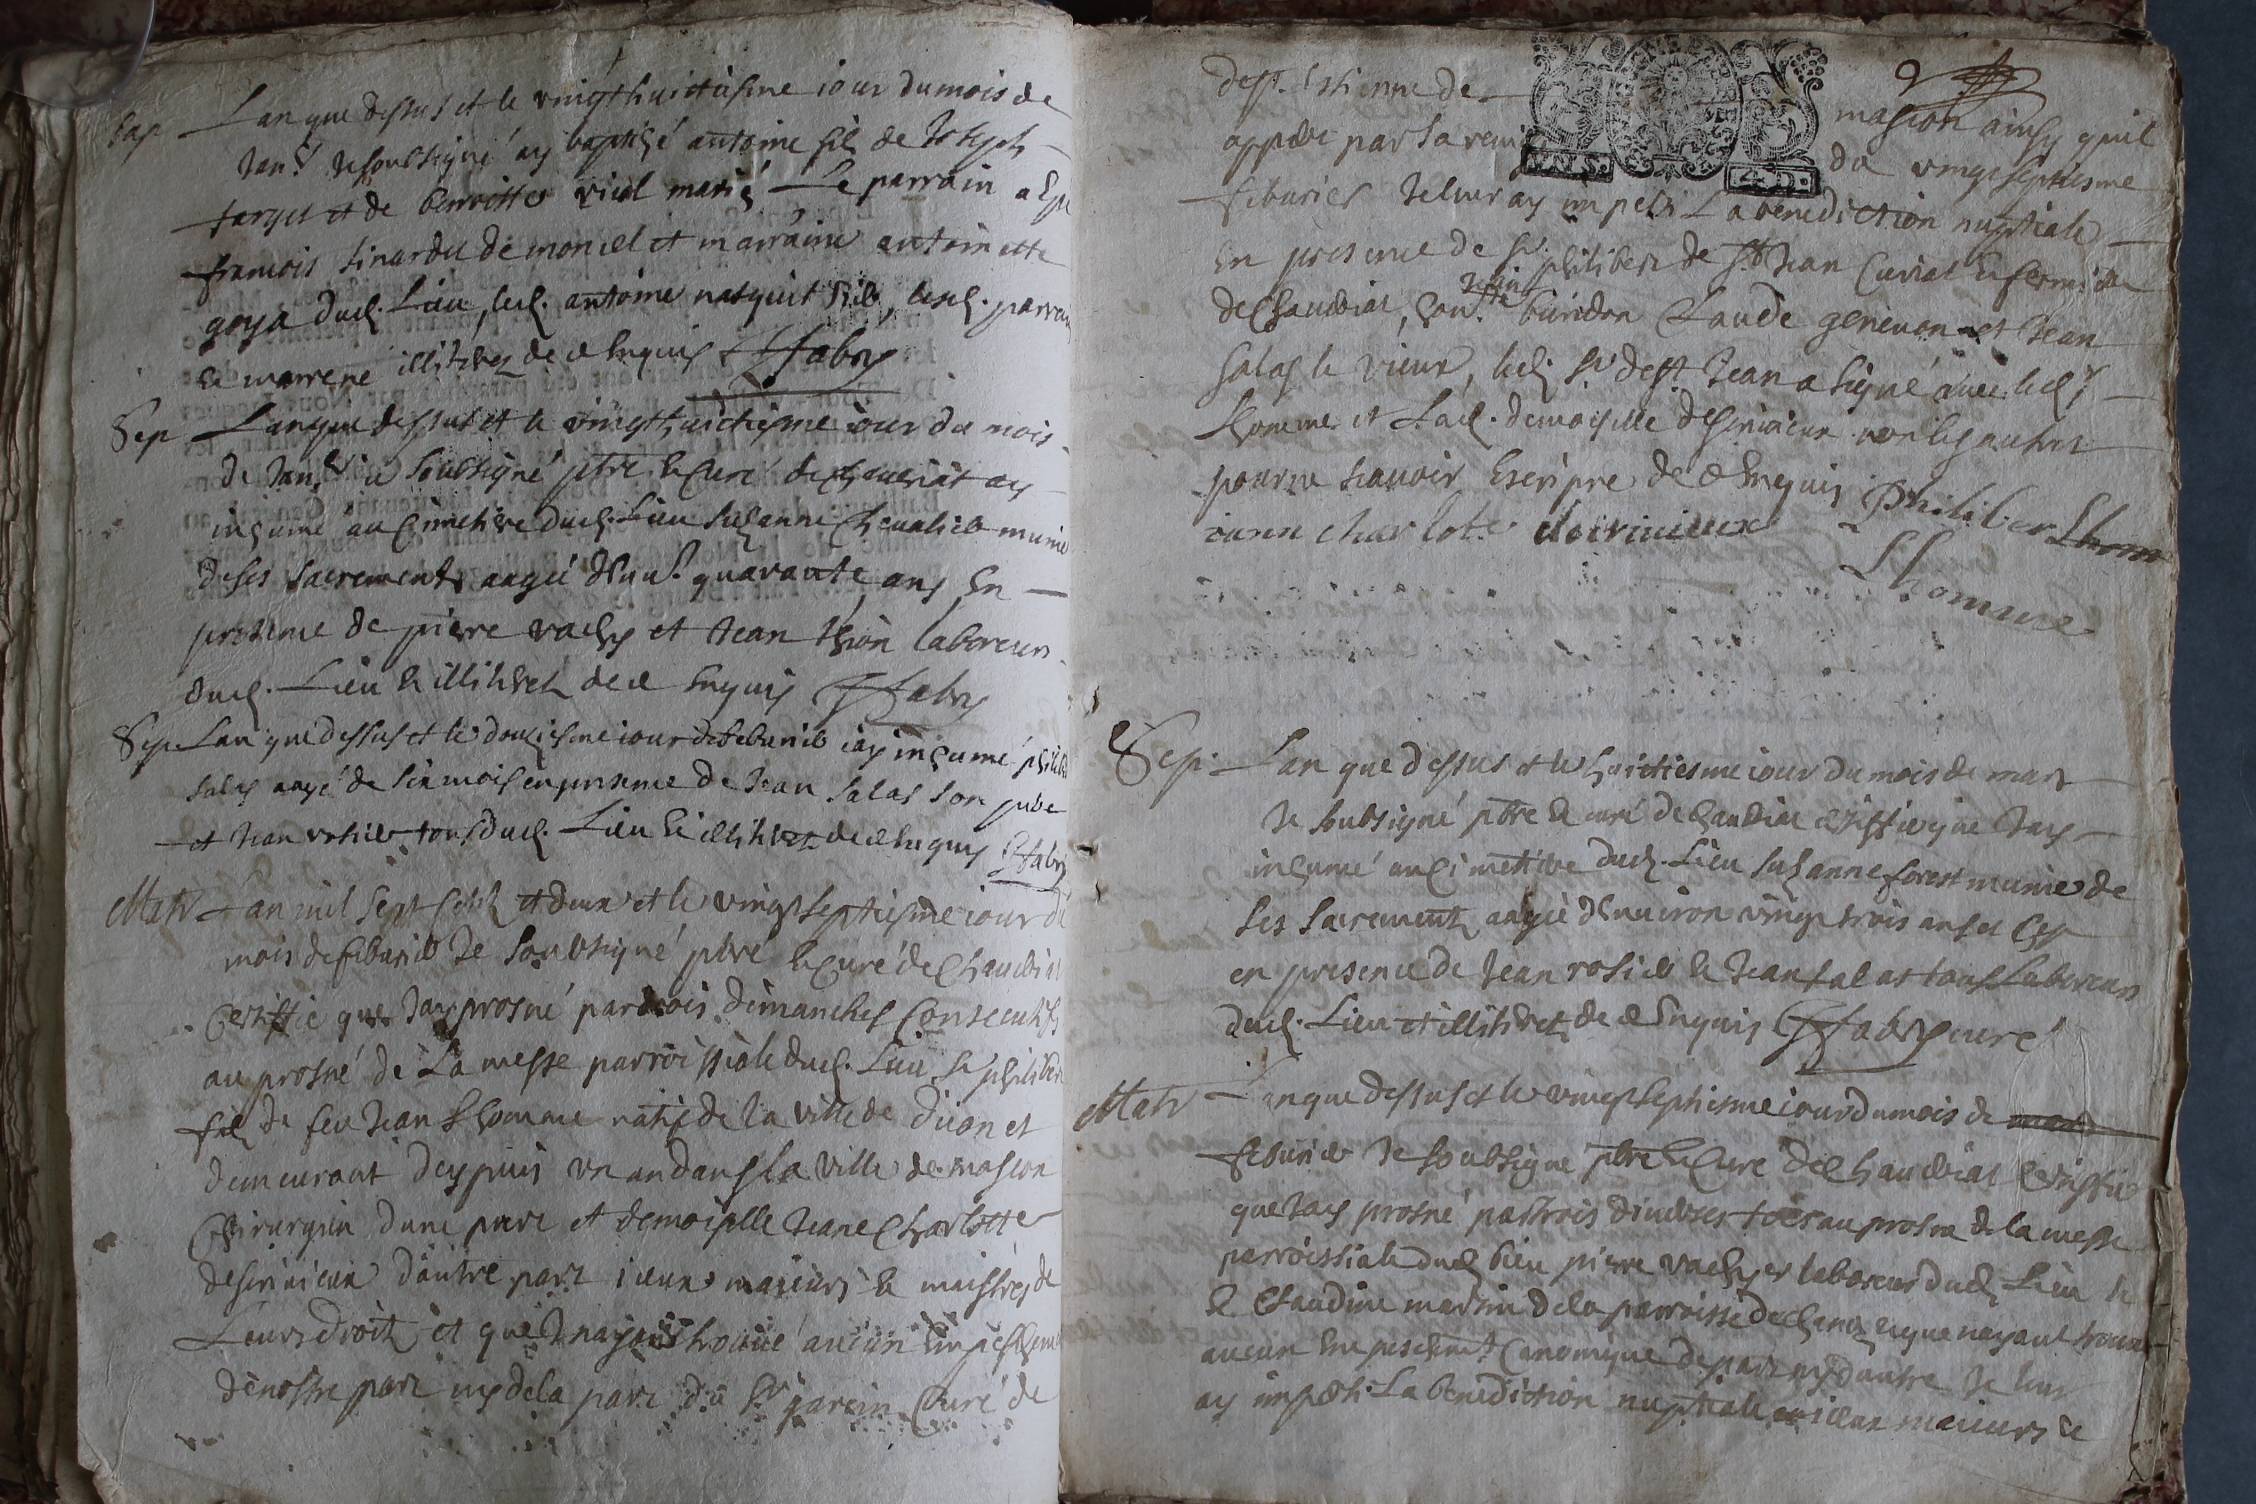 Bap Lan que dessus et le vingthuictiesme iour du mois de
Janr. Je soubsigné ay baptizé antoine filz de Joseph
farges et de benoitte viol mariés Le parrain a Este
francois sinardet de moncel et marraine antoinette
goya dud. Lieu, led. antoine nasquit hier, lesd. parrain
et marrene illitérés de ce Enquis Ffabry
Sep Lan que dessus et le vingthuictiesme iour du mois
de Janr. ie soubsigné ptre et Curé de chaveriat ay
inhumé au Cimetiere dud. Lieu Suzanne Chevalier munie
de ses sacrements aagée d'env. quarante ans En
presence de pierre vachy et Jean thion laboreurs
dud. Lieu et illitérés de ce Enquis Ffabry
Sep Lan que dessus et le douziesme iour de febvrier iay inhumé philib
salas aagé de six mois en presence de Jean salas son pere
et Jean rosier tous dud. Lieu et illitérés de ce Enquis Ffabry
Matr Lan mil sept Cent et deux et le vingt septiesme iour du
mois de febvrier Je soubsigné ptre et Curé de Chaveriat
Certiffie que Jay prosné par trois dimanches Consecutifs
au prosné de La messe parroissiale dud. Lieu, Sr philibert
filz de feu Jean Lhomme natif de la ville de dijon et
demeurant despuis un an dans la ville de mascon
Chirurgien d'une part et demoiselle Jeane Charlotte
desrivieux d'autre part iceux majeurs et maistres de
Leurs droits et que n'ayant trouvé aucun Empeschement
de nostre part ny de la part du Sr garcin Curé de
de St. Estienne de mascon ainsy quil
appert par sa remise du vingt septiesme
febvrier Je leur ay imparti La benediction nuptiale
En presence de Sr. philibert de St Jean Curial et fermier
de Chaveriat, Jean buiridon Claude genevon et Jean
salas le vieux, led. Sr de St Jean a signé avec led. Sr
Lhomme et Lad. demoiselle desrivieux non les autres
pour ne scavoir Escripre de ce Enquis Philiber Lhom
iann charlote deirivieux
Lhomme
Sep. Lan que dessus et le huictiesme iour du mois de mars
Je soubsigné ptre et curé de chaveriat certiffie que Jay
inhumé au Cimettiere dud. Lieu Suzanne forest munie de
ses sacrements aagée d'environ vingt trois ans et Ce
en presence de Jean rosier et Jean salas tous Laboreurs
dud. Lieu et illitérés de ce Enquis Ffabry curé
Matr Lan que dessus et le vingt septiesme iour du mois de mars
febvrier Je soubsigne ptre et Curé de Chaveriat Certiffie
que Jay prosné par trois diverses foés au prosne de la messe
parroissiale dud. Lieu pierre vachy et laboreur dud. Lieu
et Claudine martin de la parroisse de Chanoz et que nayant trouvé
aucun Empeschement Canonique de part ny d'autre Je leur
ay imparti La benediction nuptiale iceux maieurs et